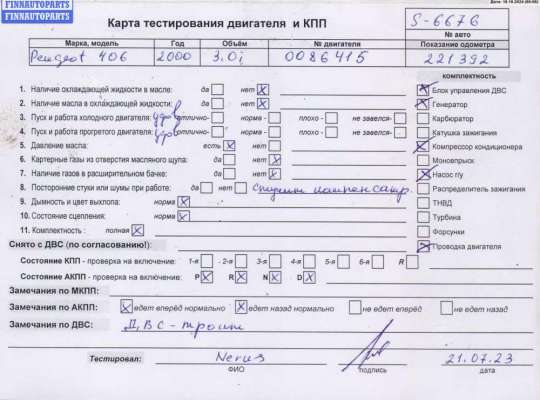 FINNAUTOPARTS
FINNAUTOPARTS
Карта тестирования двигателя и КПП
S-6676
№ авто
Марка, модель Год Объём № двигателя Показание одометра
Peugeot 406 2000 3.0i 0086415 221392
комплектность
1. Наличие охлаждающей жидкости в масле: да нет
Блок управления ДВС
2. Наличие масла в охлаждающей жидкости: да нет
Генератор
3. Пуск и работа холодного двигателя: отлично- норма - плохо - не завелся-
Карбюратор
4. Пуск и работа прогретого двигателя: отлично- норма - плохо - не завелся-
Катушка зажигания
5. Давление масла: есть нет
Компрессор кондиционера
6. Картерные газы из отверстия масляного щупа: да нет
Моновпрыск
7. Наличие газов в расширительном бачке: да нет
Насос г/у
8. Посторонние стуки или шумы при работе: да нет
Распределитель зажигания
9. Дымность и цвет выхлопа: норма
ТНВД
10. Состояние сцепления: норма
Турбина
11. Комплектность : полная
Форсунки
Снято с ДВС (по согласованию!):
Проводка двигателя
Состояние КПП - проверка на включение: 1-я 2-я 3-я 4-я 5-я 6-я R
Состояние АКПП - проверка на включение: P R N D
Замечания по МКПП:
Замечания по АКПП: едет вперёд нормально едет назад нормально не едет вперёд не едет назад
Замечания по ДВС: ДВС - троит
Тестировал: Nerus 21.07.23
ФИО подпись дата